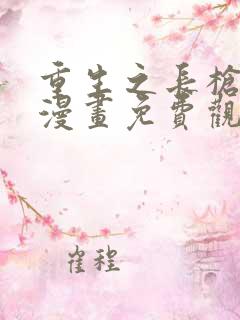 重生之長槍
漫畫免費觀
崔程